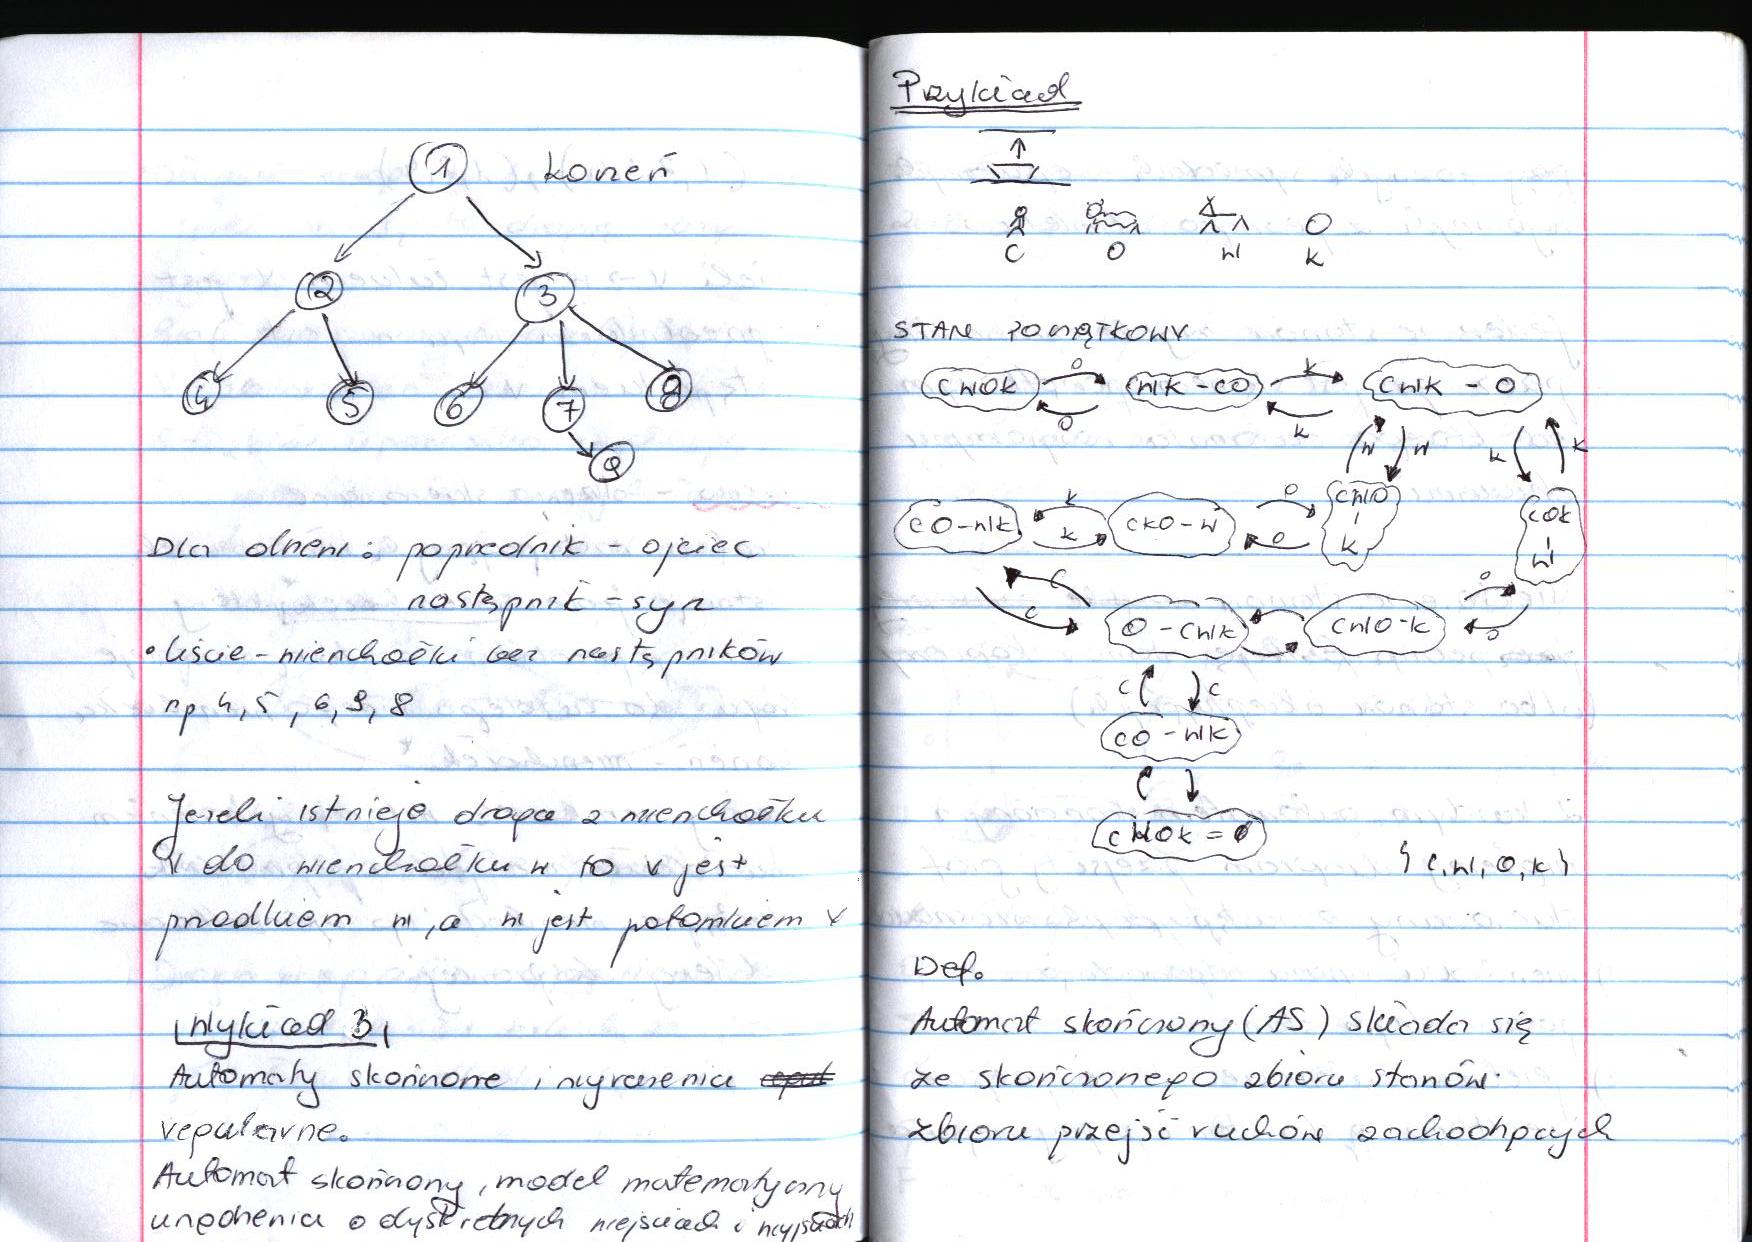 1 korzeń
2 3
4 5 6 7 8
9
Dla drzew: poprzednik - ojciec
następnik - syn
• liście - wierzchołki bez następników
np 4, 5, 6, 9, 8
Jeżeli istnieje droga z wierzchołku
v do wierzchołku w to v jest
przodkiem w, a w jest potomkiem v
Wykład 3
Automaty skończone i wyrażenia
regularne.
Automat skończony, model matematyczny
urządzenia o dyskretnych wejściach i wyjściach
Przykład
C O W K
STAN POCZĄTKOWY
CWOK O O WK-CO K K CWK-O
W W K K
CO-WK K K CKO-W O O CWO-K COK-W
C C O-CWK CWO-K O O
C C
CO-WK
CWOK=∅
{C,W,O,K}
Def.
Automat skończony (AS) składa się
ze skończonego zbioru stanów
zbioru przejść ruchów zachodzących